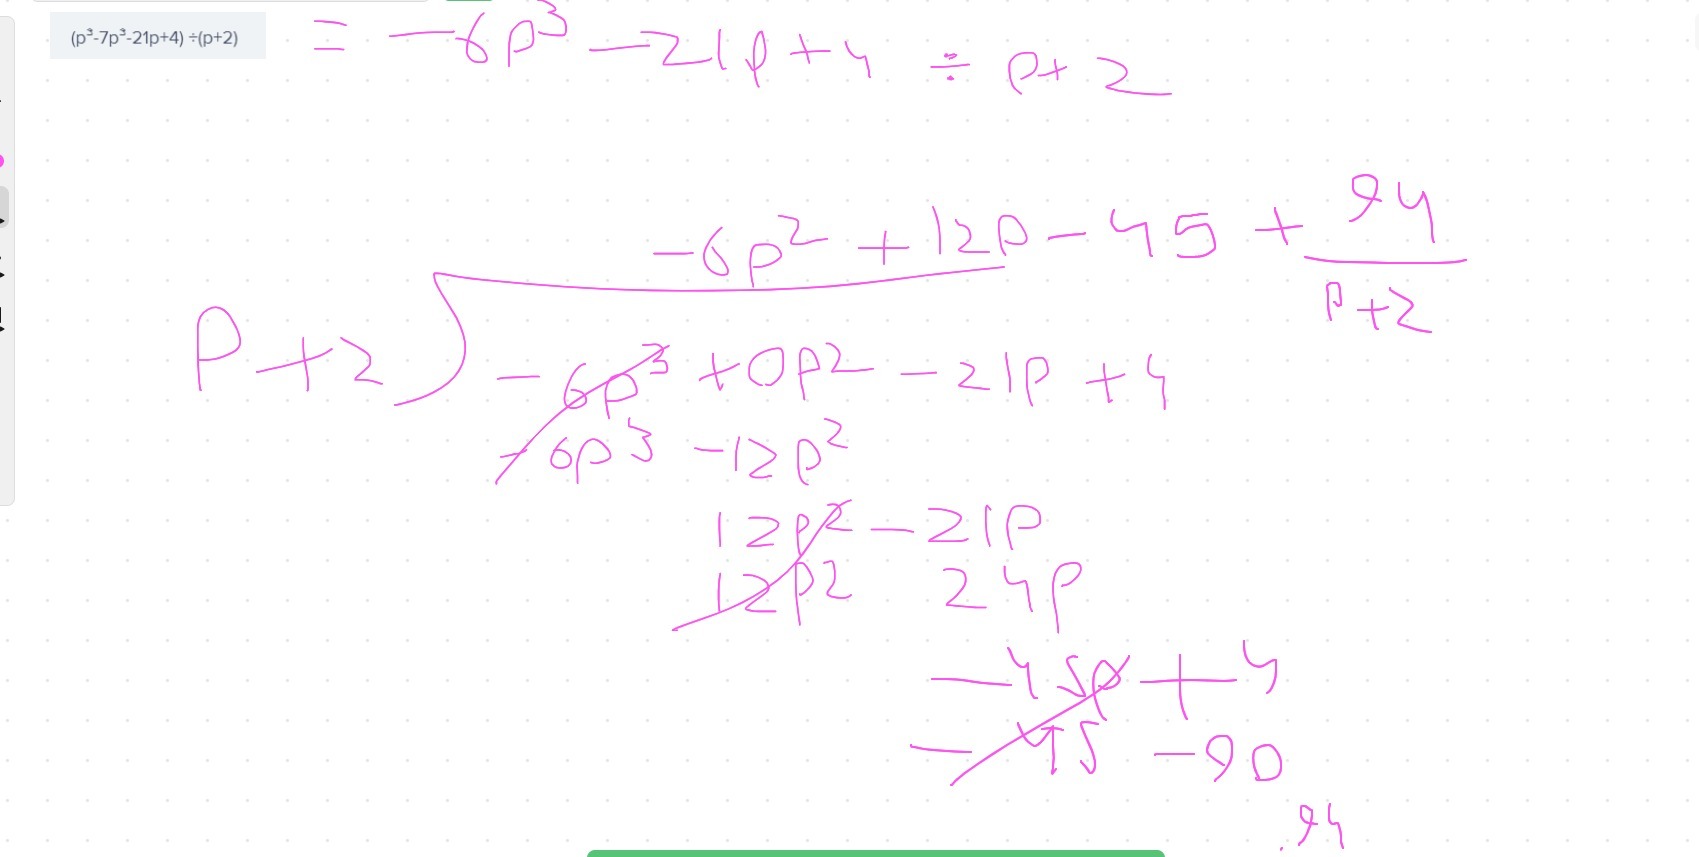 (p³-7p³-21p+4) ÷(p+2) = -6p³ -21p+4 ÷ p+2
-6p² +12p - 45 + 94/p+2
p+2 -6p³ +0p² -21p +4
-6p³ -12p²
12p² -21p
12p2 24p
-45p +4
-45 -90
94